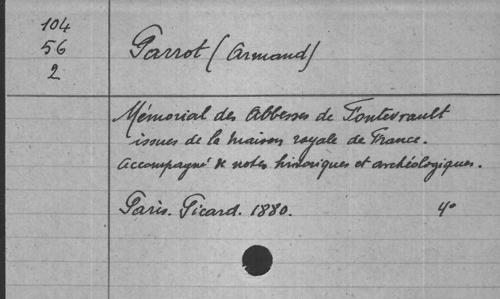 104
56
2
Parrot (Armand)
Mémorial des Abbesses de Fontevrault
issues de la maison royale de France.
accompagné de notes historiques et archéologiques.
Paris. Picard. 1880. 4°